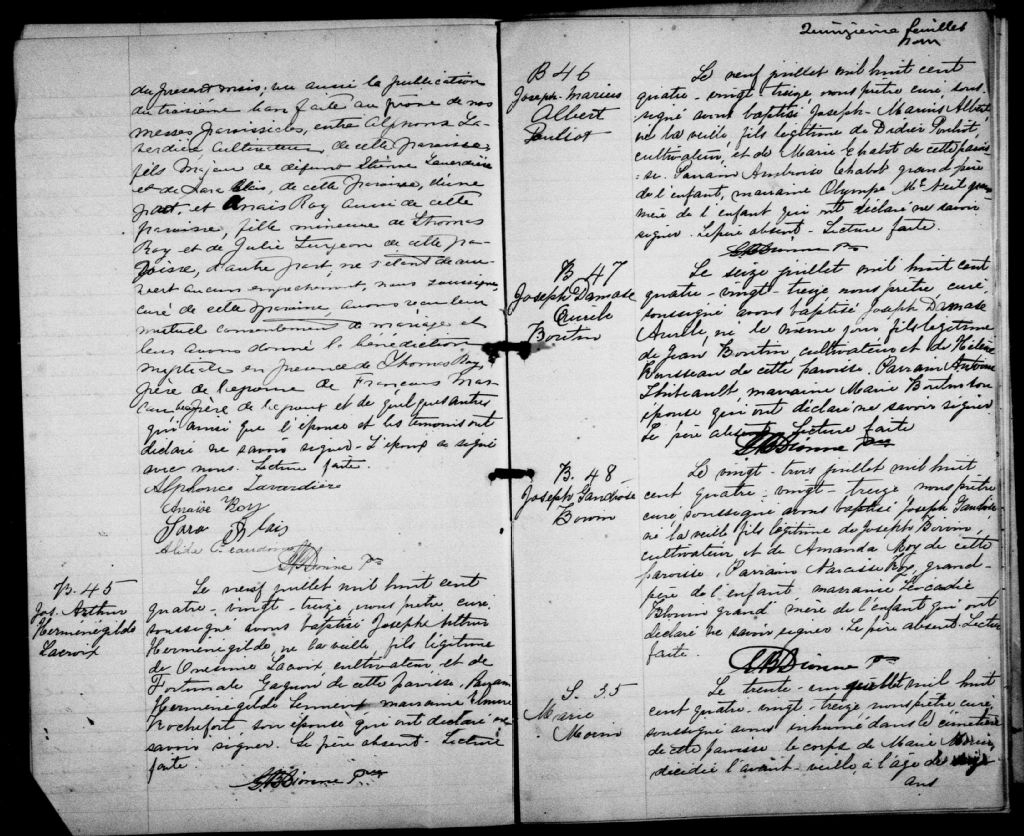 du présent mois; vu aussi la publication
du troisième ban faite au prône de nos
messes paroissiales, entre Alphonse La-
verdière Cultivateur, de cette paroisse
fils majeur de défunt Etienne Laverdière
et de Sara Blais, de cette paroisse, d'une
part, et Anaïs Roy aussi de cette
paroisse, fille mineure de Thomas
Roy et de Julie Turgeon de cette pa-
roisse, d'autre part, ne s'étant décou-
vert aucun empêchement, nous soussigné,
curé de cette paroisse, avons reçu leur
mutuel consentement de mariage et
leur avons donné la bénédiction
nuptiale en présence de Thomas Roy
père de l'épouse de François
père de l'époux et de quelques autres
qui ainsi que l'épouse et les témoins ont
déclaré ne savoir signer. L'époux a signé
avec nous. Lecture faite.
Alphonce Lavardière
Roy
Sara Blais
Alida
Dionne Ptre
B. 45
Jos. Arthur
Herménégilde
Lacroix
Le neuf juillet mil huit cent
quatre-vingt-treize, nous prêtre, curé,
soussigné avons baptisé Joseph Arthur
Herménégilde, né la veille, fils légitime
de Onesime Lacroix cultivateur et de
Fortunate Gagnon de cette paroisse. Parrain
Herménégilde marraine
Rochefort, son épouse qui ont déclaré ne
savoir signer. Le père absent. Lecture
faite.
Dionne Ptre
Quinzième feuillet
B 46
Joseph-Marius
Albert
Pouliot
Le neuf juillet mil huit cent
quatre-vingt-treize nous prêtre curé, sous-
signé avons baptisé Joseph-Marius Albert
né la veille, fils légitime de Didier Pouliot,
cultivateur, et de Marie Chabot de cette parois
-se. Parrain Ambroise Chabot grand-père
de l'enfant, marraine Olympe McNeil grand
mère de l'enfant qui ont déclaré ne savoir
signer. Le père absent. Lecture faite.
Dionne Ptre
B. 47
Joseph Damase
Aurèle
Boutin
Le seize juillet mil huit cent
quatre-vingt-treize nous prêtre curé,
soussigné avons baptisé Joseph Damase
Aurèle, né le même jour fils légitime
de Jean Boutin, cultivateur, et de Hélène
Rousseau de cette paroisse. Parrain Antoine
Thibeault, marraine Marie Boutin son
épouse qui ont déclaré ne savoir signer
Le père absent. Lecture faite
Dionne Ptre
B. 48
Joseph
Le vingt-trois juillet mil huit
cent quatre-vingt-treize nous prêtre
curé, soussigné avons baptisé Joseph
né la veille fils légitime de Joseph
cultivateur et de Amanda Roy de cette
paroisse. Parrain Narcisse Roy, grand-
père de l'enfant marraine Léocadie
Blouin grand'mère de l'enfant qui ont
déclaré ne savoir signer. Le père absent. Lecture
faite.
Dionne Ptre
S. 35
Marie
Morin
Le trente-un juillet mil huit
cent quatre-vingt-treize nous prêtre curé,
soussigné avons inhumé dans le cimetière
de cette paroisse le corps de Marie Morin,
décédée l'avant-veille, à l'âge de
ans